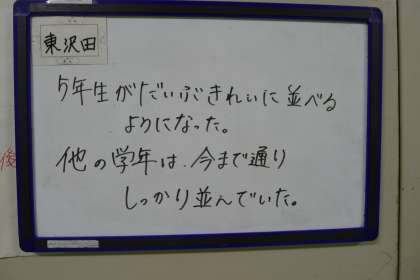 東沢田
5年生がだいぶきれいに並べる
ようになった。
他の学年は、今まで通り
しっかり並んでいた。
後